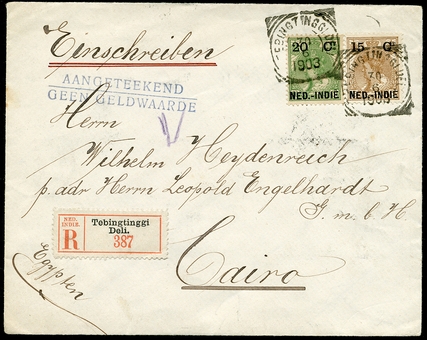 Einschreiben
AANGETEEKEND
GEEN GELDWAARDE
TEBINGTINGGI
30
6
1903
20 C.
NED.-INDIE
15 C.
NED.-INDIE
TEBINGTINGGI
30
1903
Herrn
Wilhelm Heydenreich
p. adr Herrn Leopold Engelhardt
G. m. b. H.
NED. INDIE.
R
Tebingtinggi
Deli.
387
Cairo
Egypten